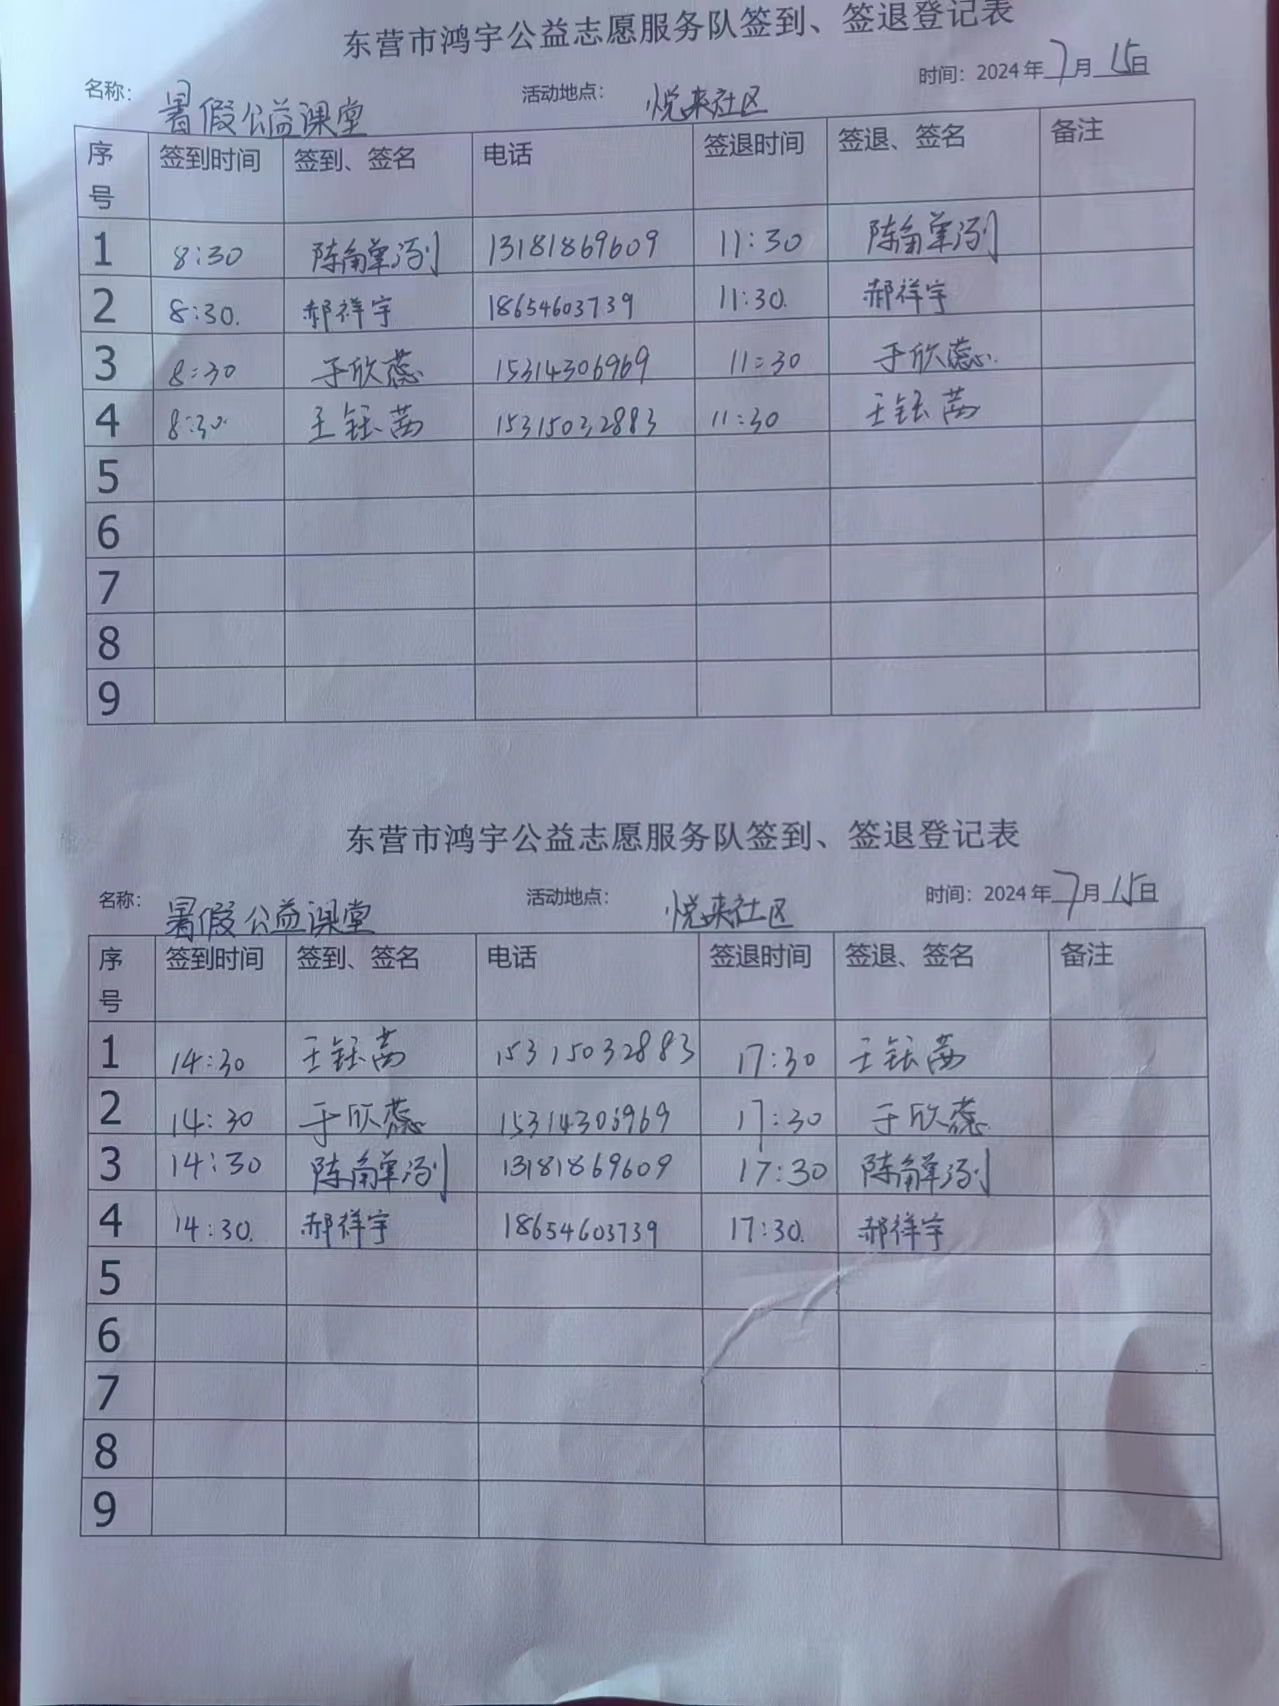 东营市鸿宇公益志愿服务队签到、签退登记表
名称： 暑假公益课堂 活动地点： 悦来社区 时间：2024年7月15日
序号 签到时间 签到、签名 电话 签退时间 签退、签名 备注
1 8:30 陈 13181869609 11:30 陈
2 8:30. 郝祥宇 18654603739 11:30. 郝祥宇
3 8:30 于欣蕊 15314306969 11:30 于欣蕊
4 8:30 王钰茜 15315032883 11:30 王钰茜
5
6
7
8
9
东营市鸿宇公益志愿服务队签到、签退登记表
名称： 暑假公益课堂 活动地点： 悦来社区 时间：2024年7月15日
序号 签到时间 签到、签名 电话 签退时间 签退、签名 备注
1 14:30 王钰茜 15315032883 17:30 王钰茜
2 14:30 于欣蕊 15314306969 17:30 于欣蕊
3 14:30 陈 13181869609 17:30 陈
4 14:30. 郝祥宇 18654603739 17:30. 郝祥宇
5
6
7
8
9